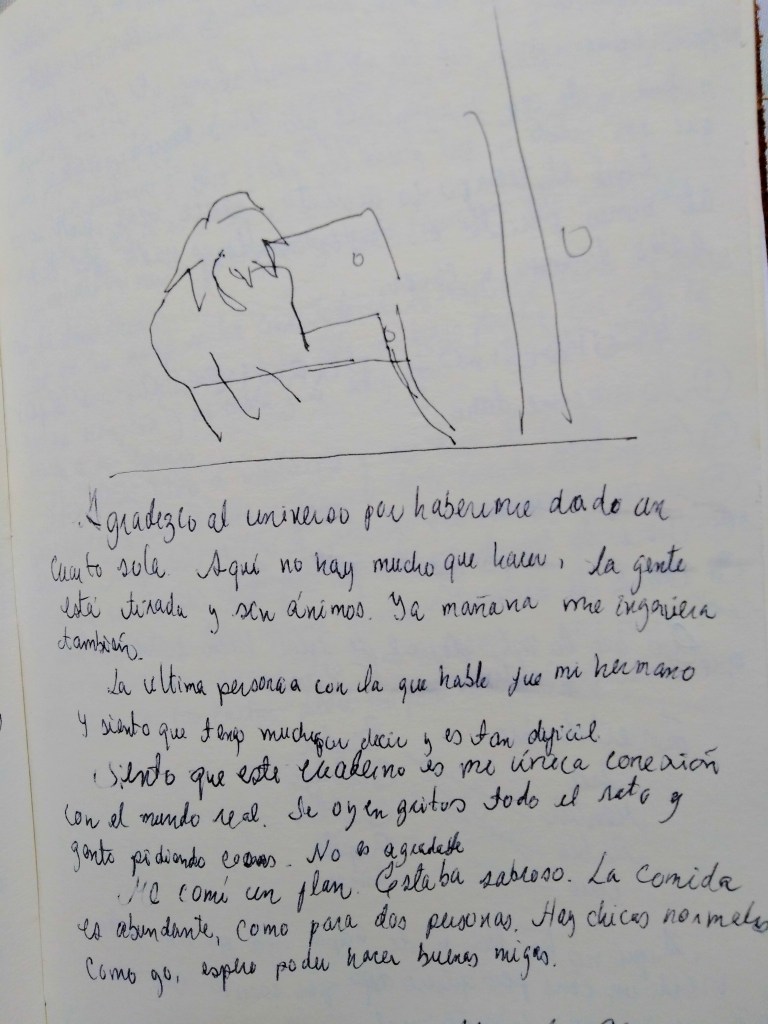 Agradezco al universo por haberme dado un
cuarto sola. Aquí no hay mucho que hacer, la gente
está tirada y sin ánimos. Ya mañana me
también.
La ultima persona con la que hable fue mi hermano
y siento que tengo mucho por decir y es tan dificil.
Siento que este cuaderno es mi única conexión
con el mundo real. Se oyen gritos todo el rato y
gente pidiendo cosas. No es agradable
Me comí un flan. Estaba sabroso. La comida
es abundante, como para dos personas. Hay chicas normales
como yo, espero poder hacer buenas migas.